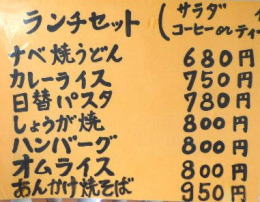 ランチセット(サラダ
コーヒーorティー
ナベ焼うどん 680円
カレーライス 750円
日替パスタ 780円
しょうが焼 800円
ハンバーグ 800円
オムライス 800円
あんかけ焼そば 950円